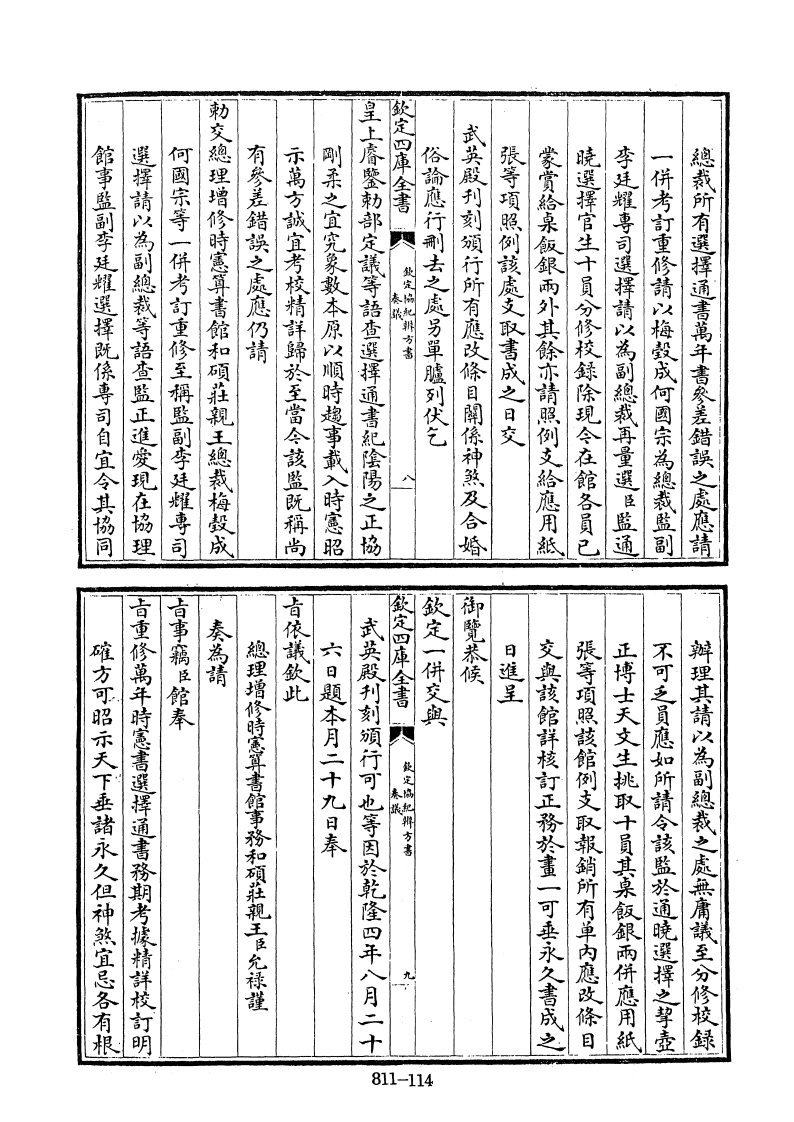 總裁所有選擇通書萬年書參差錯誤之處應請
一併考訂重修請以梅瑴成何國宗為總裁監副
李廷耀專司選擇請以為副總裁再量選臣監通
曉選擇官生十員分修校録除現今在館各員已
蒙賞給桌飯銀兩外其餘亦請照例支給應用紙
張等項照例該處支取書成之日交
武英殿刊刻頒行所有應改條目關係神煞及合婚
俗論應行刪去之處另單臚列伏乞
欽定四庫全書
欽定協紀辨方書
奏議
八
皇上睿鑒勅部定議等語查選擇通書紀陰陽之正協
剛柔之宜究象數本原以順時趨事載入時憲昭
示萬方誠宜考校精詳歸於至當今該監既稱尚
有參差錯誤之處應仍請
勅交總理增修時憲算書館和碩莊親王總裁梅瑴成
何國宗等一併考訂重修至稱監副李廷耀專司
選擇請以為副總裁等語查監正進愛現在協理
館事監副李廷耀選擇既係專司自宜令其協同
辦理其請以為副總裁之處無庸議至分修校録
不可乏員應如所請令該監於通曉選擇之挈壺
正博士天文生挑取十員其桌飯銀兩併應用紙
張等項照該館例支取報銷所有单内應改條目
交與該館詳核訂正務於畫一可垂永久書成之
日進呈
御覽恭候
欽定一併交與
欽定四庫全書
欽定協紀辨方書
奏議
九
武英殿刊刻頒行可也等因於乾隆四年八月二十
六日題本月二十九日奉
旨依議欽此
總理增修時憲算書館事務和碩莊親王臣允祿謹
奏為請
旨事竊臣館奉
旨重修萬年時憲書選擇通書務期考據精詳校訂明
確方可昭示天下垂諸永久但神煞宜忌各有根
811-114